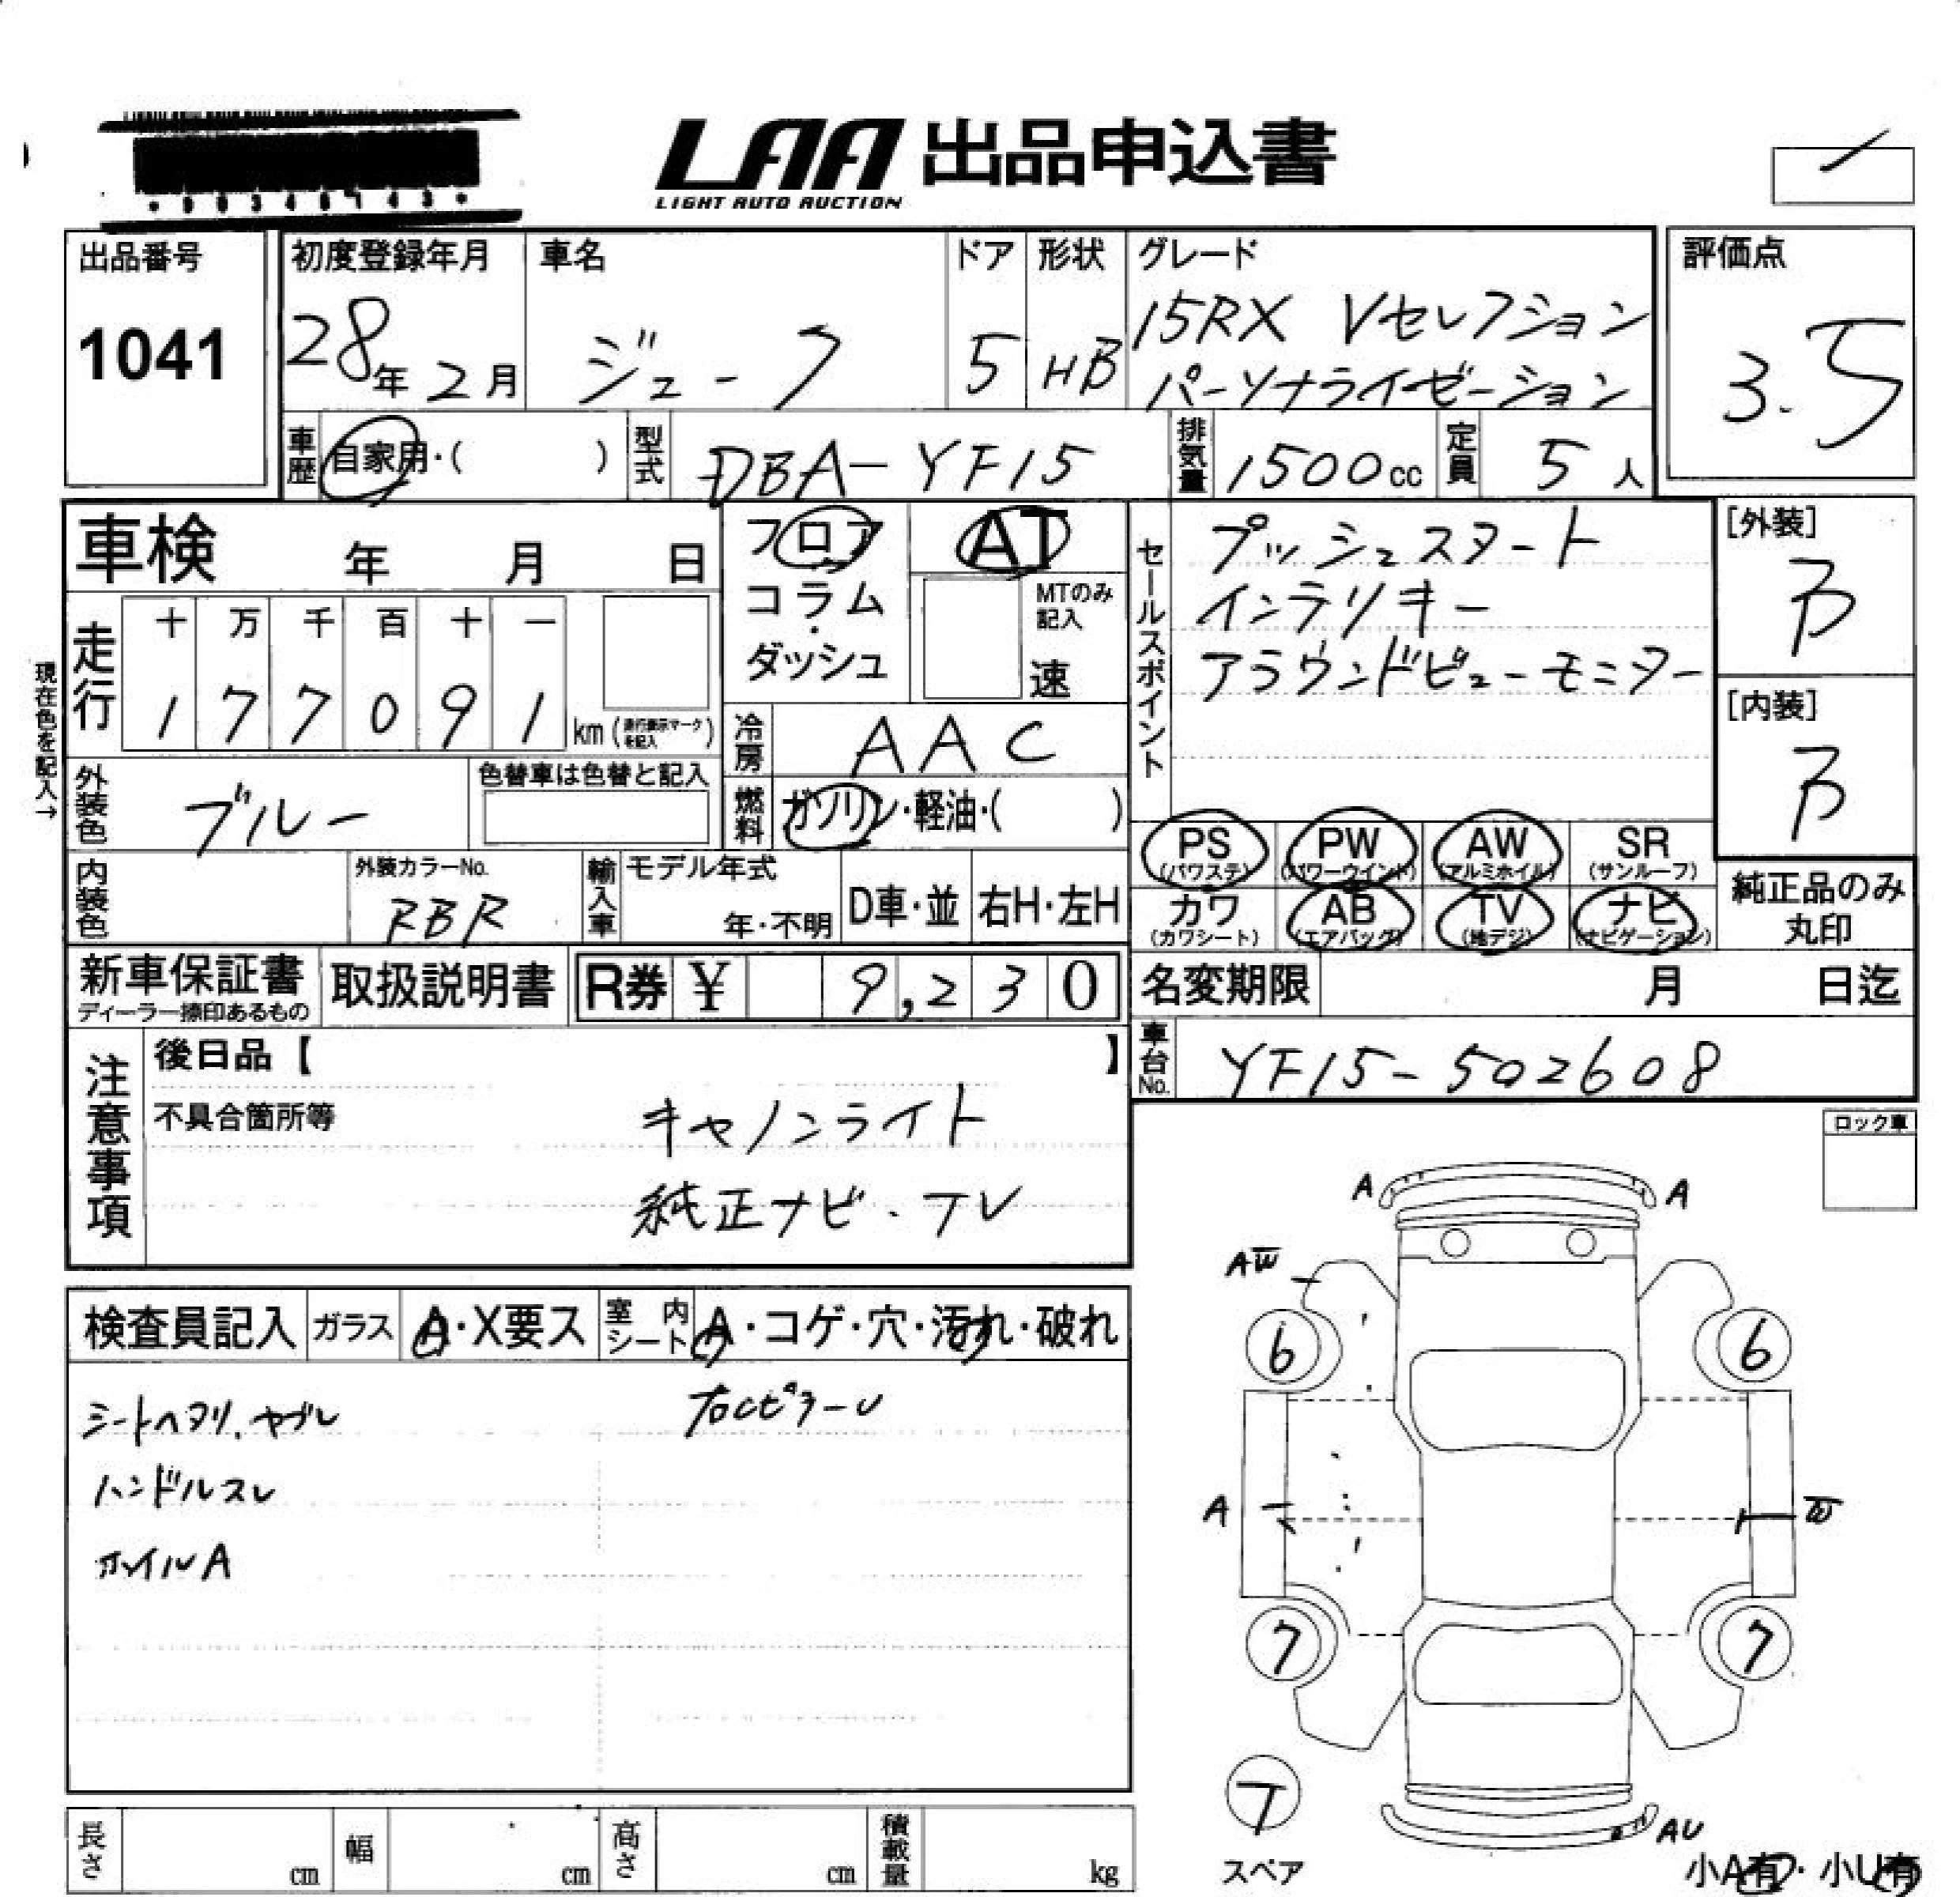 LAA 出品申込書
LIGHT AUTO AUCTION
出品番号
1041
初度登録年月
28年2月
車名
ジューク
ドア
5
形状
HB
グレード
15RX Vセレクション
パーソナライゼーション
評価点
3.5
車歴 自家用・( )
型式 DBA-YF15
排気量 1500cc
定員 5人
車検 年 月 日
フロア
コラム
・
ダッシュ
AT
MTのみ
記入
速
セールスポイント
プッシュスタート
インテリキー
アラウンドビューモニター
[外装]
B
[内装]
B
現在色を記入→
走行
十 万 千 百 十 一
1 7 7 0 9 1 km (走行表示マークを記入)
冷房 AAC
外装色 ブルー
色替車は色替と記入
燃料 ガソリン・軽油・( )
PS (パワステ)
PW (パワーウインド)
AW (アルミホイル)
SR (サンルーフ)
カワ (カワシート)
AB (エアバッグ)
TV (地デジ)
ナビ (ナビゲーション)
純正品のみ
丸印
内装色
外装カラーNo.
RBR
輸入車
モデル年式
年・不明
D車・並
右H・左H
新車保証書
ディーラー捺印あるもの
取扱説明書
R券 ¥ 9,230
名変期限 月 日迄
車台No. YF15-502608
注意事項
後日品【 】
不具合箇所等
キャノンライト
純正ナビ・TV
ロック車
検査員記入
ガラス A・X要ス
室内シート A・コゲ・穴・汚れ・破れ
シートヘタリ、ヤブレ
右CピラーU
ハンドルスレ
ホイルA
A
A
AW
6
6
A
W
7
7
T
スペア
AU
小A有・小U有
長さ cm
幅 cm
高さ cm
積載量 kg